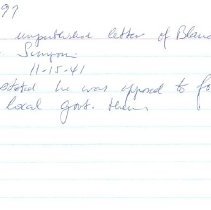 97
unpublished letter of Blan
Simpson
11-15-41
stated he was opposed to fo
local govt. then.